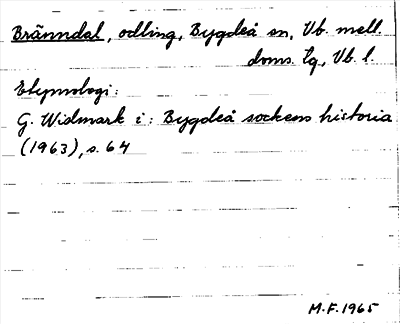 Bränndal, odling, Bygdeå sn, Vb. mell.
doms. lg, Vb. l.
Etymologi:
G. Widmark i: Bygdeå sockens historia
(1963), s. 64
M.F. 1965